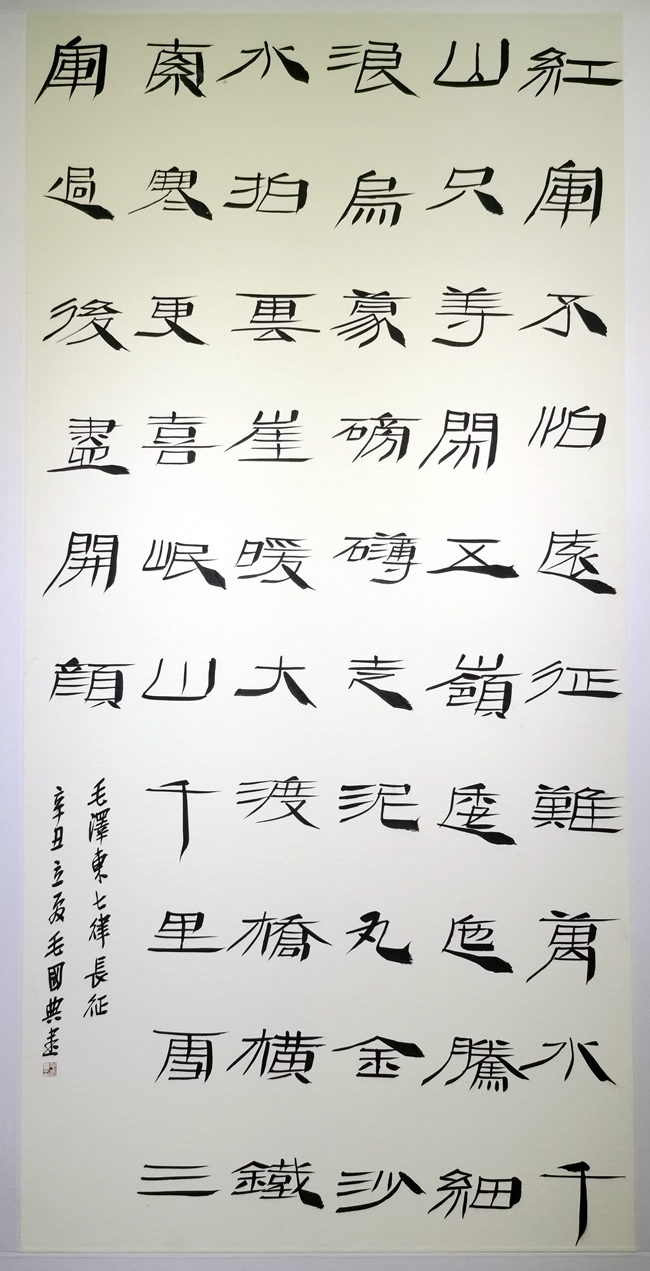 紅軍不怕遠征難萬水千
山只等閑五嶺逶迤騰細
浪烏蒙磅礴走泥丸金沙
水拍雲崖暖大渡橋橫鐵
索寒更喜岷山千里雪三
軍過後盡開顏
毛澤東七律長征
辛丑立夏毛國典書